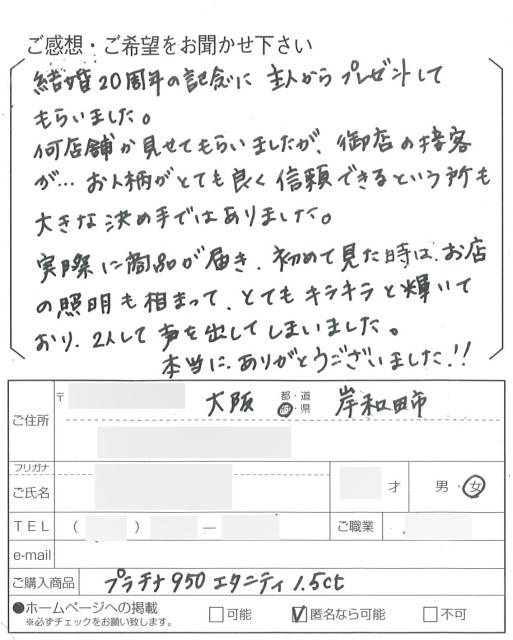 ご感想・ご希望をお聞かせ下さい
結婚20周年の記念に 主人から プレゼントして
もらいました。
何店舗か見せてもらいましたが、御店の接客
が… お人柄がとても良く信頼できるという所も
大きな決め手ではありました。
実際に商品が届き、初めて見た時は、お店
の照明も相まって、とてもキラキラと輝いて
おり、2人して声を出してしまいました。
本当に、ありがとうございました!!
ご住所 〒 大阪 都・道 府・県 岸和田市
フリガナ
ご氏名 才 男・女
TEL ( ) ― ご職業
e-mail
ご購入商品 プラチナ950 エタニティ 1.5ct
●ホームページへの掲載 □可能 ☑匿名なら可能 □不可
※必ずチェックをお願い致します。